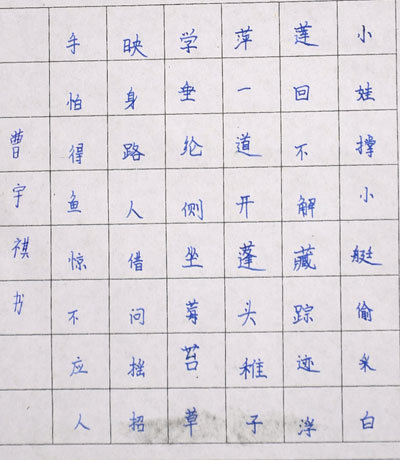 小娃撑小艇偷采白
莲回不解藏踪迹浮
萍一道开蓬头稚子
学垂纶侧坐莓苔草
映身路人借问摇招
手怕得鱼惊不应人
曹宇祺书